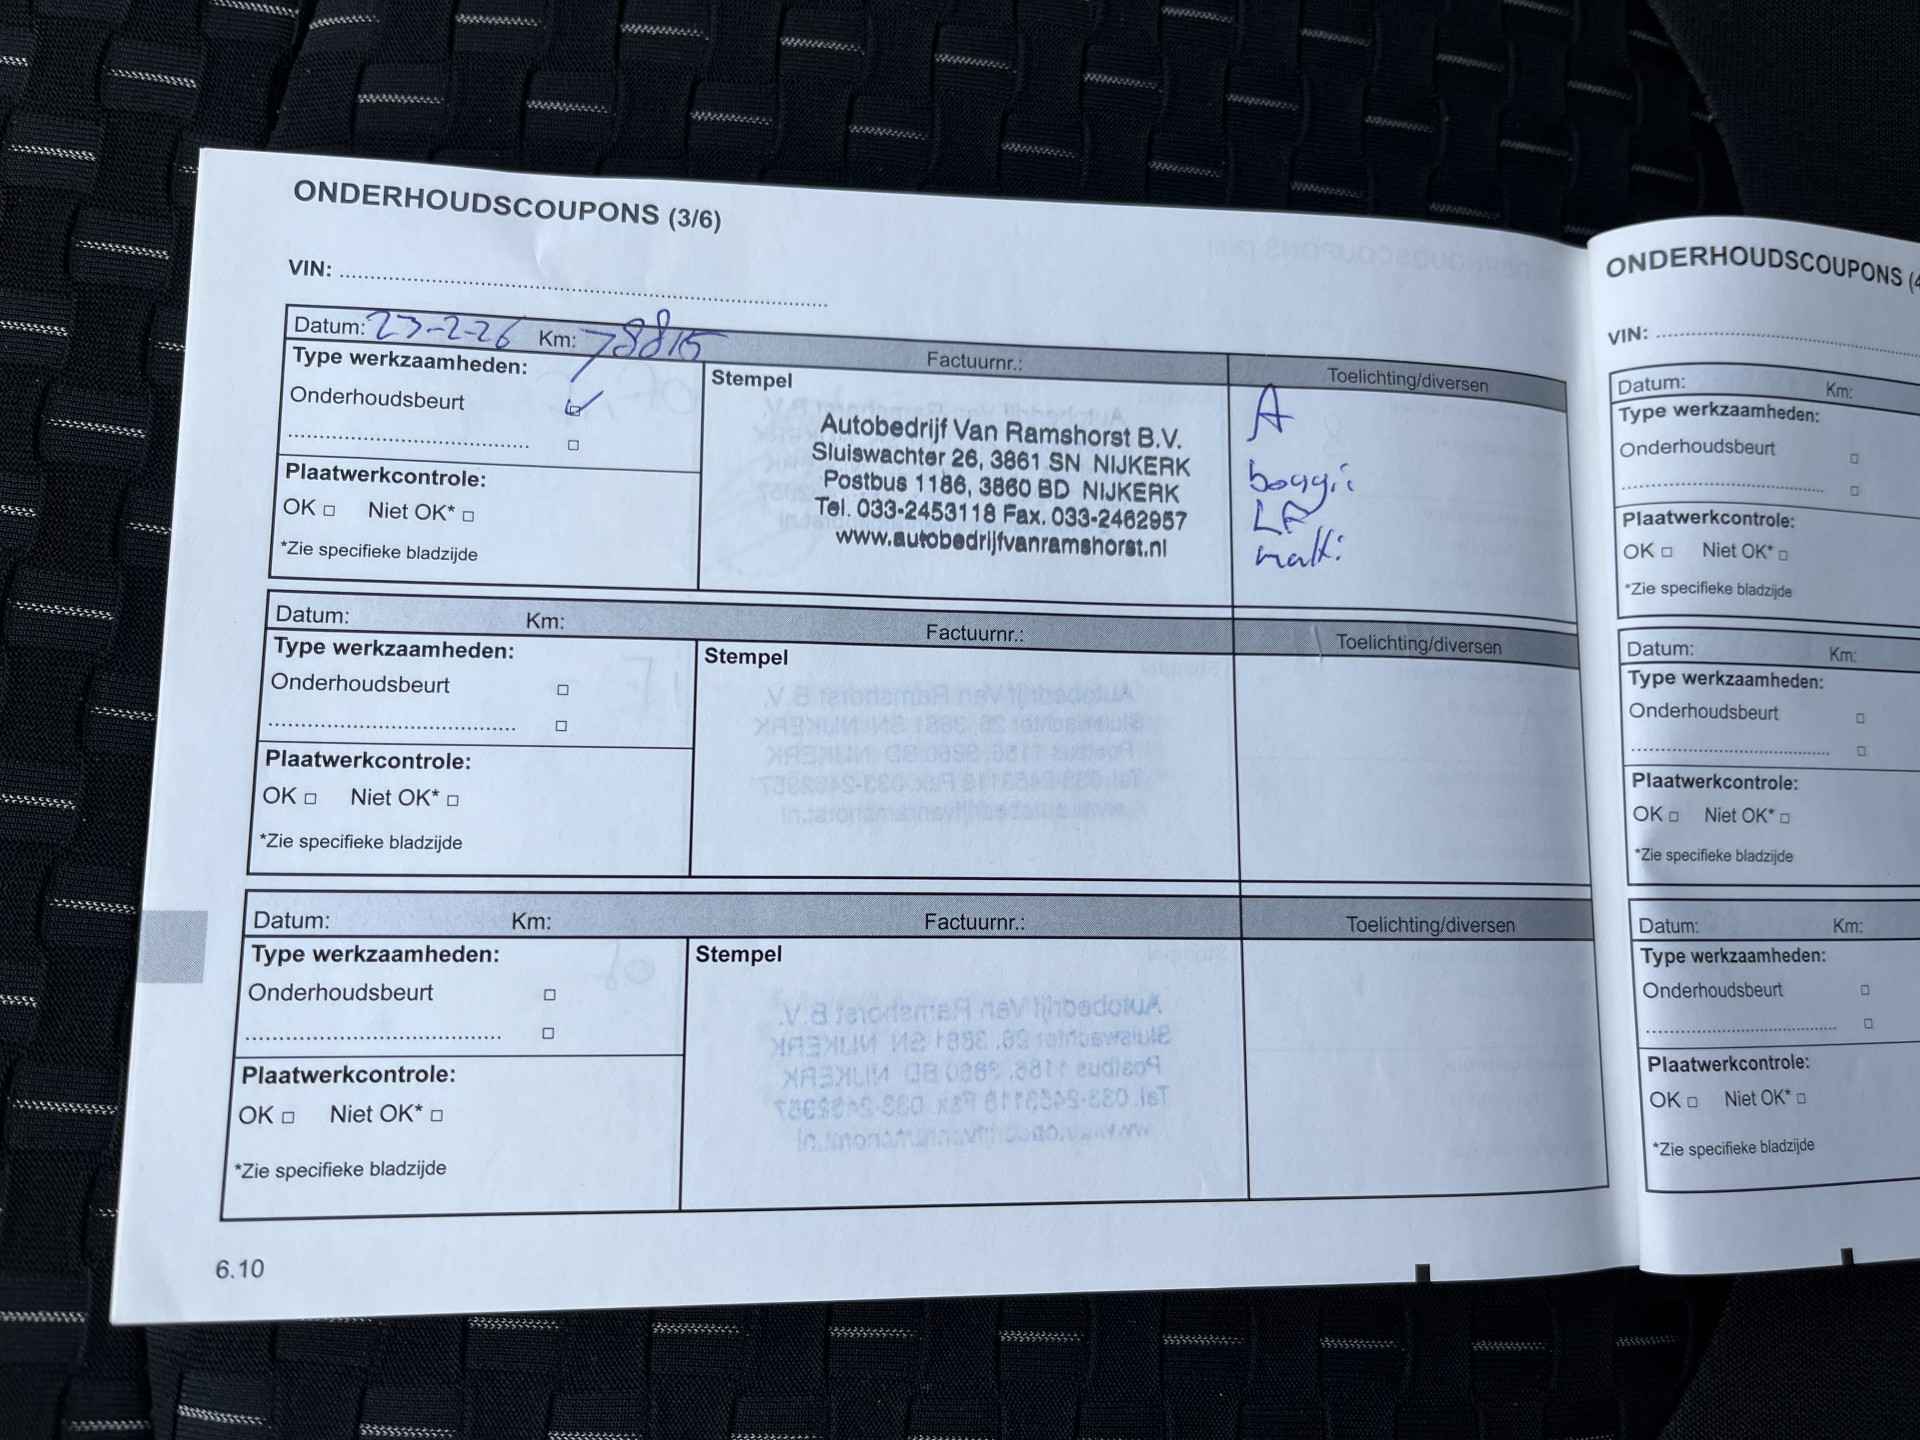 ONDERHOUDSCOUPONS (3/6)
VIN:
Datum: 23-2-26 Km: 78815 Factuurnr.: Toelichting/diversen
Type werkzaamheden:
Onderhoudsbeurt
Plaatwerkcontrole:
OK Niet OK*
*Zie specifieke bladzijde
Stempel
Autobedrijf Van Ramshorst B.V.
Sluiswachter 26, 3861 SN NIJKERK
Postbus 1186, 3860 BD NIJKERK
Tel. 033-2453118 Fax. 033-2462957
www.autobedrijfvanramshorst.nl
A
Datum: Km: Factuurnr.: Toelichting/diversen
Type werkzaamheden:
Onderhoudsbeurt
Plaatwerkcontrole:
OK Niet OK*
*Zie specifieke bladzijde
Stempel
Datum: Km: Factuurnr.: Toelichting/diversen
Type werkzaamheden:
Onderhoudsbeurt
Plaatwerkcontrole:
OK Niet OK*
*Zie specifieke bladzijde
Stempel
6.10
ONDERHOUDSCOUPONS (4
VIN:
Datum: Km:
Type werkzaamheden:
Onderhoudsbeurt
Plaatwerkcontrole:
OK Niet OK*
*Zie specifieke bladzijde
Datum: Km:
Type werkzaamheden:
Onderhoudsbeurt
Plaatwerkcontrole:
OK Niet OK*
*Zie specifieke bladzijde
Datum: Km:
Type werkzaamheden:
Onderhoudsbeurt
Plaatwerkcontrole:
OK Niet OK*
*Zie specifieke bladzijde